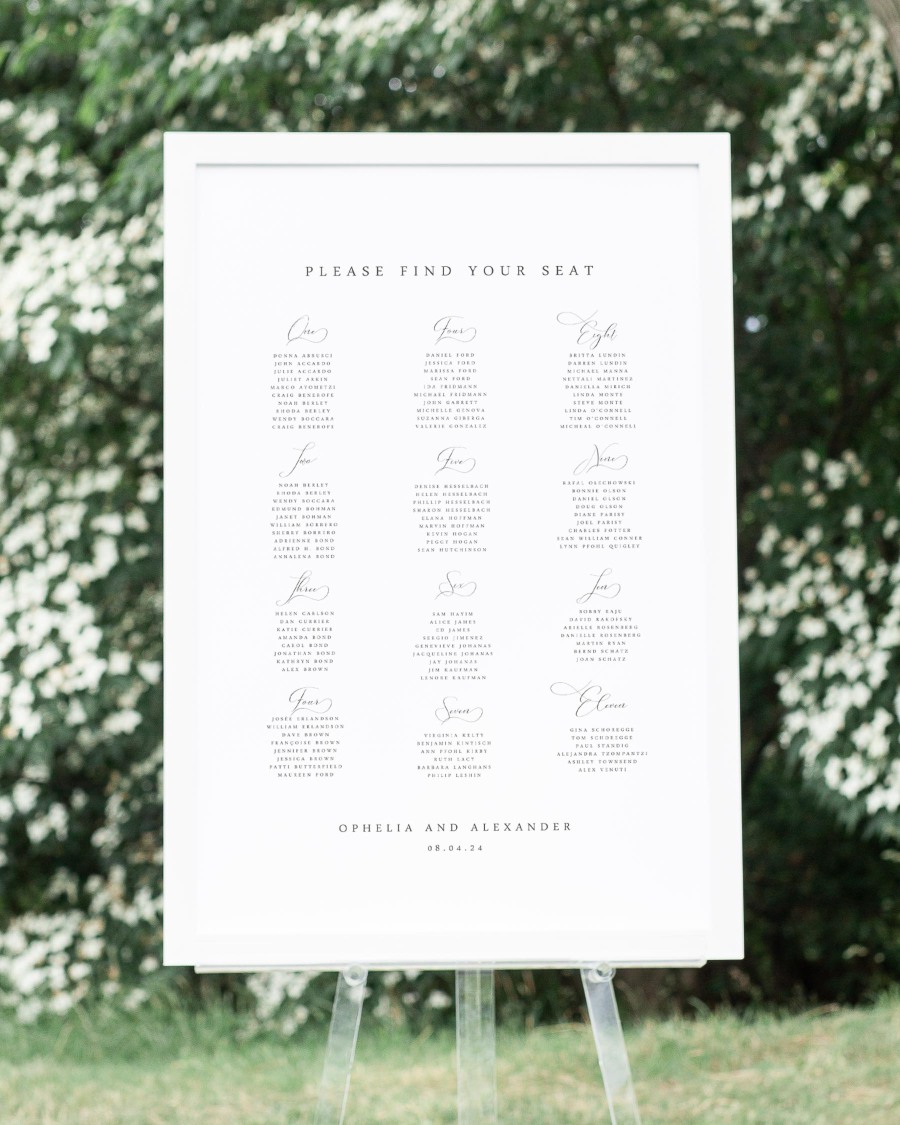 PLEASE FIND YOUR SEAT
One
DONNA ABRUSCI
JOHN ACCARDO
JULIE ACCARDO
JULIET ASKIN
MARGO AYOMETZI
CRAIG BENEROFE
NOAH BEXLEY
RHODA BEXLEY
WENDY BOCCARA
CRAIG BENEROFE
Two
NOAH BEXLEY
RHODA BEXLEY
WENDY BOCCARA
EDMUND BOHMAN
JANET BOHMAN
WILLIAM BORBERG
SHERRY BORBERG
ADRIENNE BOND
ALFRED H. BOND
ANNALENA BOND
Three
HELEN CARLSON
DAN CURRIER
KATIE CURRIER
AMANDA BOND
CAROL BOND
JONATHAN BOND
KATHRYN BOND
ALEX BROWN
Four
JOSÉE ERLANDSON
WILLIAM ERLANDSON
DAVE BROWN
FRANÇOISE BROWN
JENNIFER BROWN
JESSICA BROWN
PATTI BUTTERFIELD
MAUREEN FORD
Four
DANIEL FORD
JESSICA FORD
MARISSA FORD
SEAN FORD
IDA FRIDMANN
MICHAEL FRIDMANN
JOHN GARRETT
MICHELLE GENOVA
SUZANNA GIBERGA
VALERIE GONZALEZ
Five
DENISE HESSELBACH
HELEN HESSELBACH
PHILLIP HESSELBACH
SHARON HESSELBACH
ELANA HOFFMAN
MARVIN HOFFMAN
KEVIN HOGAN
PEGGY HOGAN
SEAN HUTCHINSON
Six
SAM HAYIM
ALICE JAMES
ED JAMES
SERGIO JIMENEZ
GENEVIEVE JOHANAS
JACQUELINE JOHANAS
JAY JOHANAS
JIM KAUFMAN
LENORE KAUFMAN
Seven
VIRGINIA KELTY
BENJAMIN KINTISCH
ANN PFOHL KIRBY
RUTH LACY
BARBARA LANGHANS
PHILIP LESHIN
Eight
BRITTA LUNDIN
DARREN LUNDIN
MICHAEL MANNA
NETTALI MARTINEZ
DANIELLA MIRSCH
LINDA MONTE
STEVE MONTE
LINDA O'CONNELL
TIM O'CONNELL
MICHEAL O'CONNELL
Nine
RAFAL OLECHOWSKI
BONNIE OLSON
DANIEL OLSON
DOUG OLSON
DIANE PARISY
JOEL PARISY
CHARLES POTTER
SEAN WILLIAM CONNER
LYNN PFOHL QUIGLEY
Ten
BOBBY RAJU
DAVID
ARIELLE ROSENBERG
DANIELLE ROSENBERG
MARTIN RYAN
BERND SCHATZ
JOAN SCHATZ
Eleven
GINA SCHOREGGE
TOM SCHOREGGE
PAUL STANDIG
ALEJANDRA
ASHLEY TOWNSEND
ALEX VENUTI
OPHELIA AND ALEXANDER
08.04.24